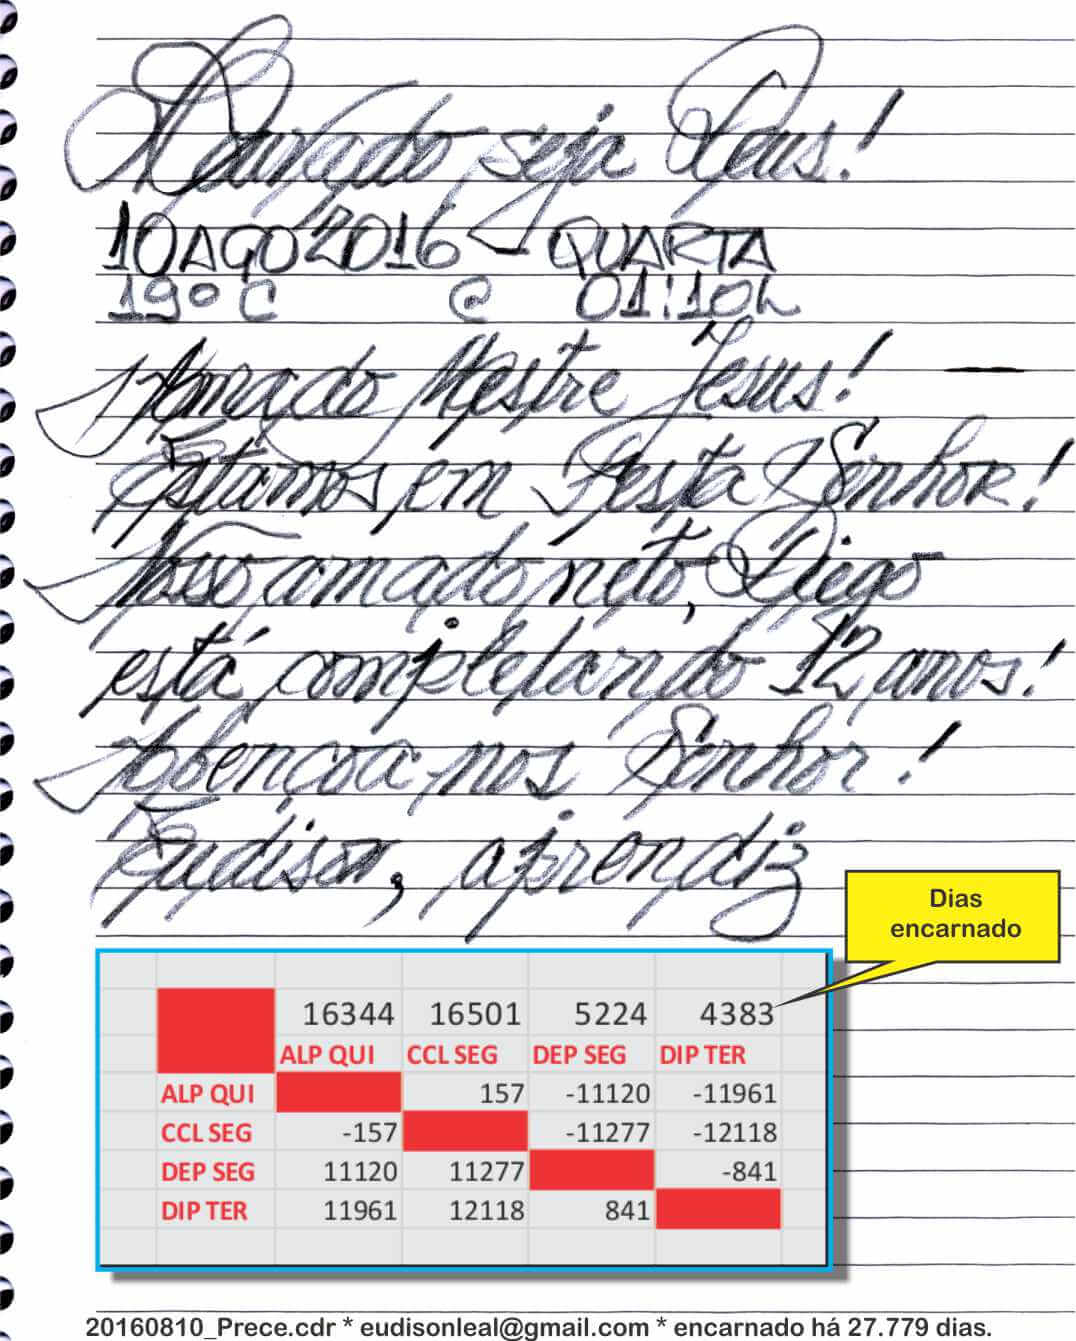 Louvado seja Deus!
10 AGO 2016 - QUARTA
19º C C 01:10h
Amado Mestre Jesus!
Estamos em Festa Senhor!
Nosso amado neto, Diego
está completando 12 anos!
Abençoa-nos Senhor!
Eudison, aprendiz
Dias
encarnado
16344 16501 5224 4383
ALP QUI CCL SEG DEP SEG DIP TER
ALP QUI 157 -11120 -11961
CCL SEG -157 -11277 -12118
DEP SEG 11120 11277 -841
DIP TER 11961 12118 841
20160810_Prece.cdr * eudisonleal@gmail.com * encarnado há 27.779 dias.